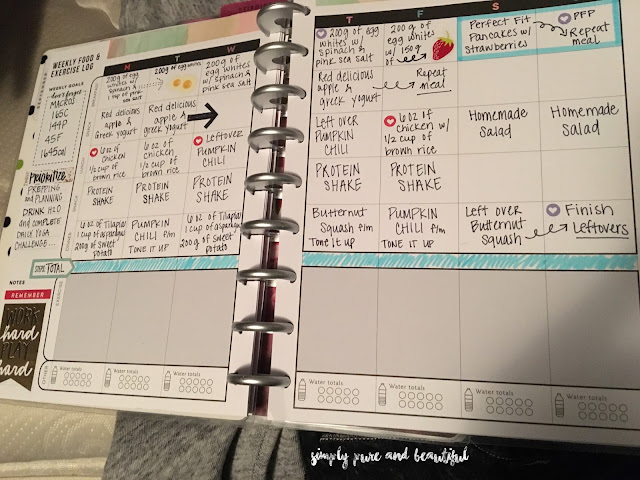 WEEKLY FOOD &
EXERCISE LOG
WEEKLY GOALS
don't forget
MACROS
165C
144P
45F
1645cal
PRIORITIZE
PREPPING
and PLANNING
DRINK H2O
and COMPLETE
DAILY YOGA
CHALLENGE...
NOTES
REMEMBER
WORK
hard
PLAY
hard
M
T
W
200g of egg
whites w/
spinach &
1 tsp of pink
sea salt
200g of egg whites
200g of egg
whites w/
spinach &
pink sea salt
Red delicious
apple &
Greek yogurt
Red delicious
apple &
greek yogurt
6 oz of
chicken
1/2 cup of
brown rice
6 oz of
chicken
1/2 cup of
brown rice
Leftover
PUMPKIN
CHILI
PROTEIN
SHAKE
PROTEIN
SHAKE
PROTEIN
SHAKE
6 oz of Tilapia
1 cup of asparagus
200g of sweet
potato
PUMPKIN
CHILI f/m
TONE IT UP
6 oz of Tilapia
1 cup of asparagus
200g of sweet
potato
TOTAL
EXERCISE
OTHER
Water totals
Water totals
Water totals
T
F
S
S
200g of egg
whites w/
spinach &
pink sea salt
200g of
egg whites
w/ 150g
of
Perfect Fit
Pancakes w/
strawberries
PFP
Repeat
meal
Red delicious
apple &
greek yogurt
Repeat
meal
Left over
PUMPKIN
CHILI
6 oz of
chicken w/
1/2 cup of
brown rice
Homemade
Salad
Homemade
Salad
PROTEIN
SHAKE
PROTEIN
SHAKE
Butternut
Squash f/m
TONE IT UP
PUMPKIN
CHILI f/m
TONE IT UP
Left over
Butternut
Squash
Finish
Leftovers
Water totals
Water totals
Water totals
Water totals
simply pure and beautiful